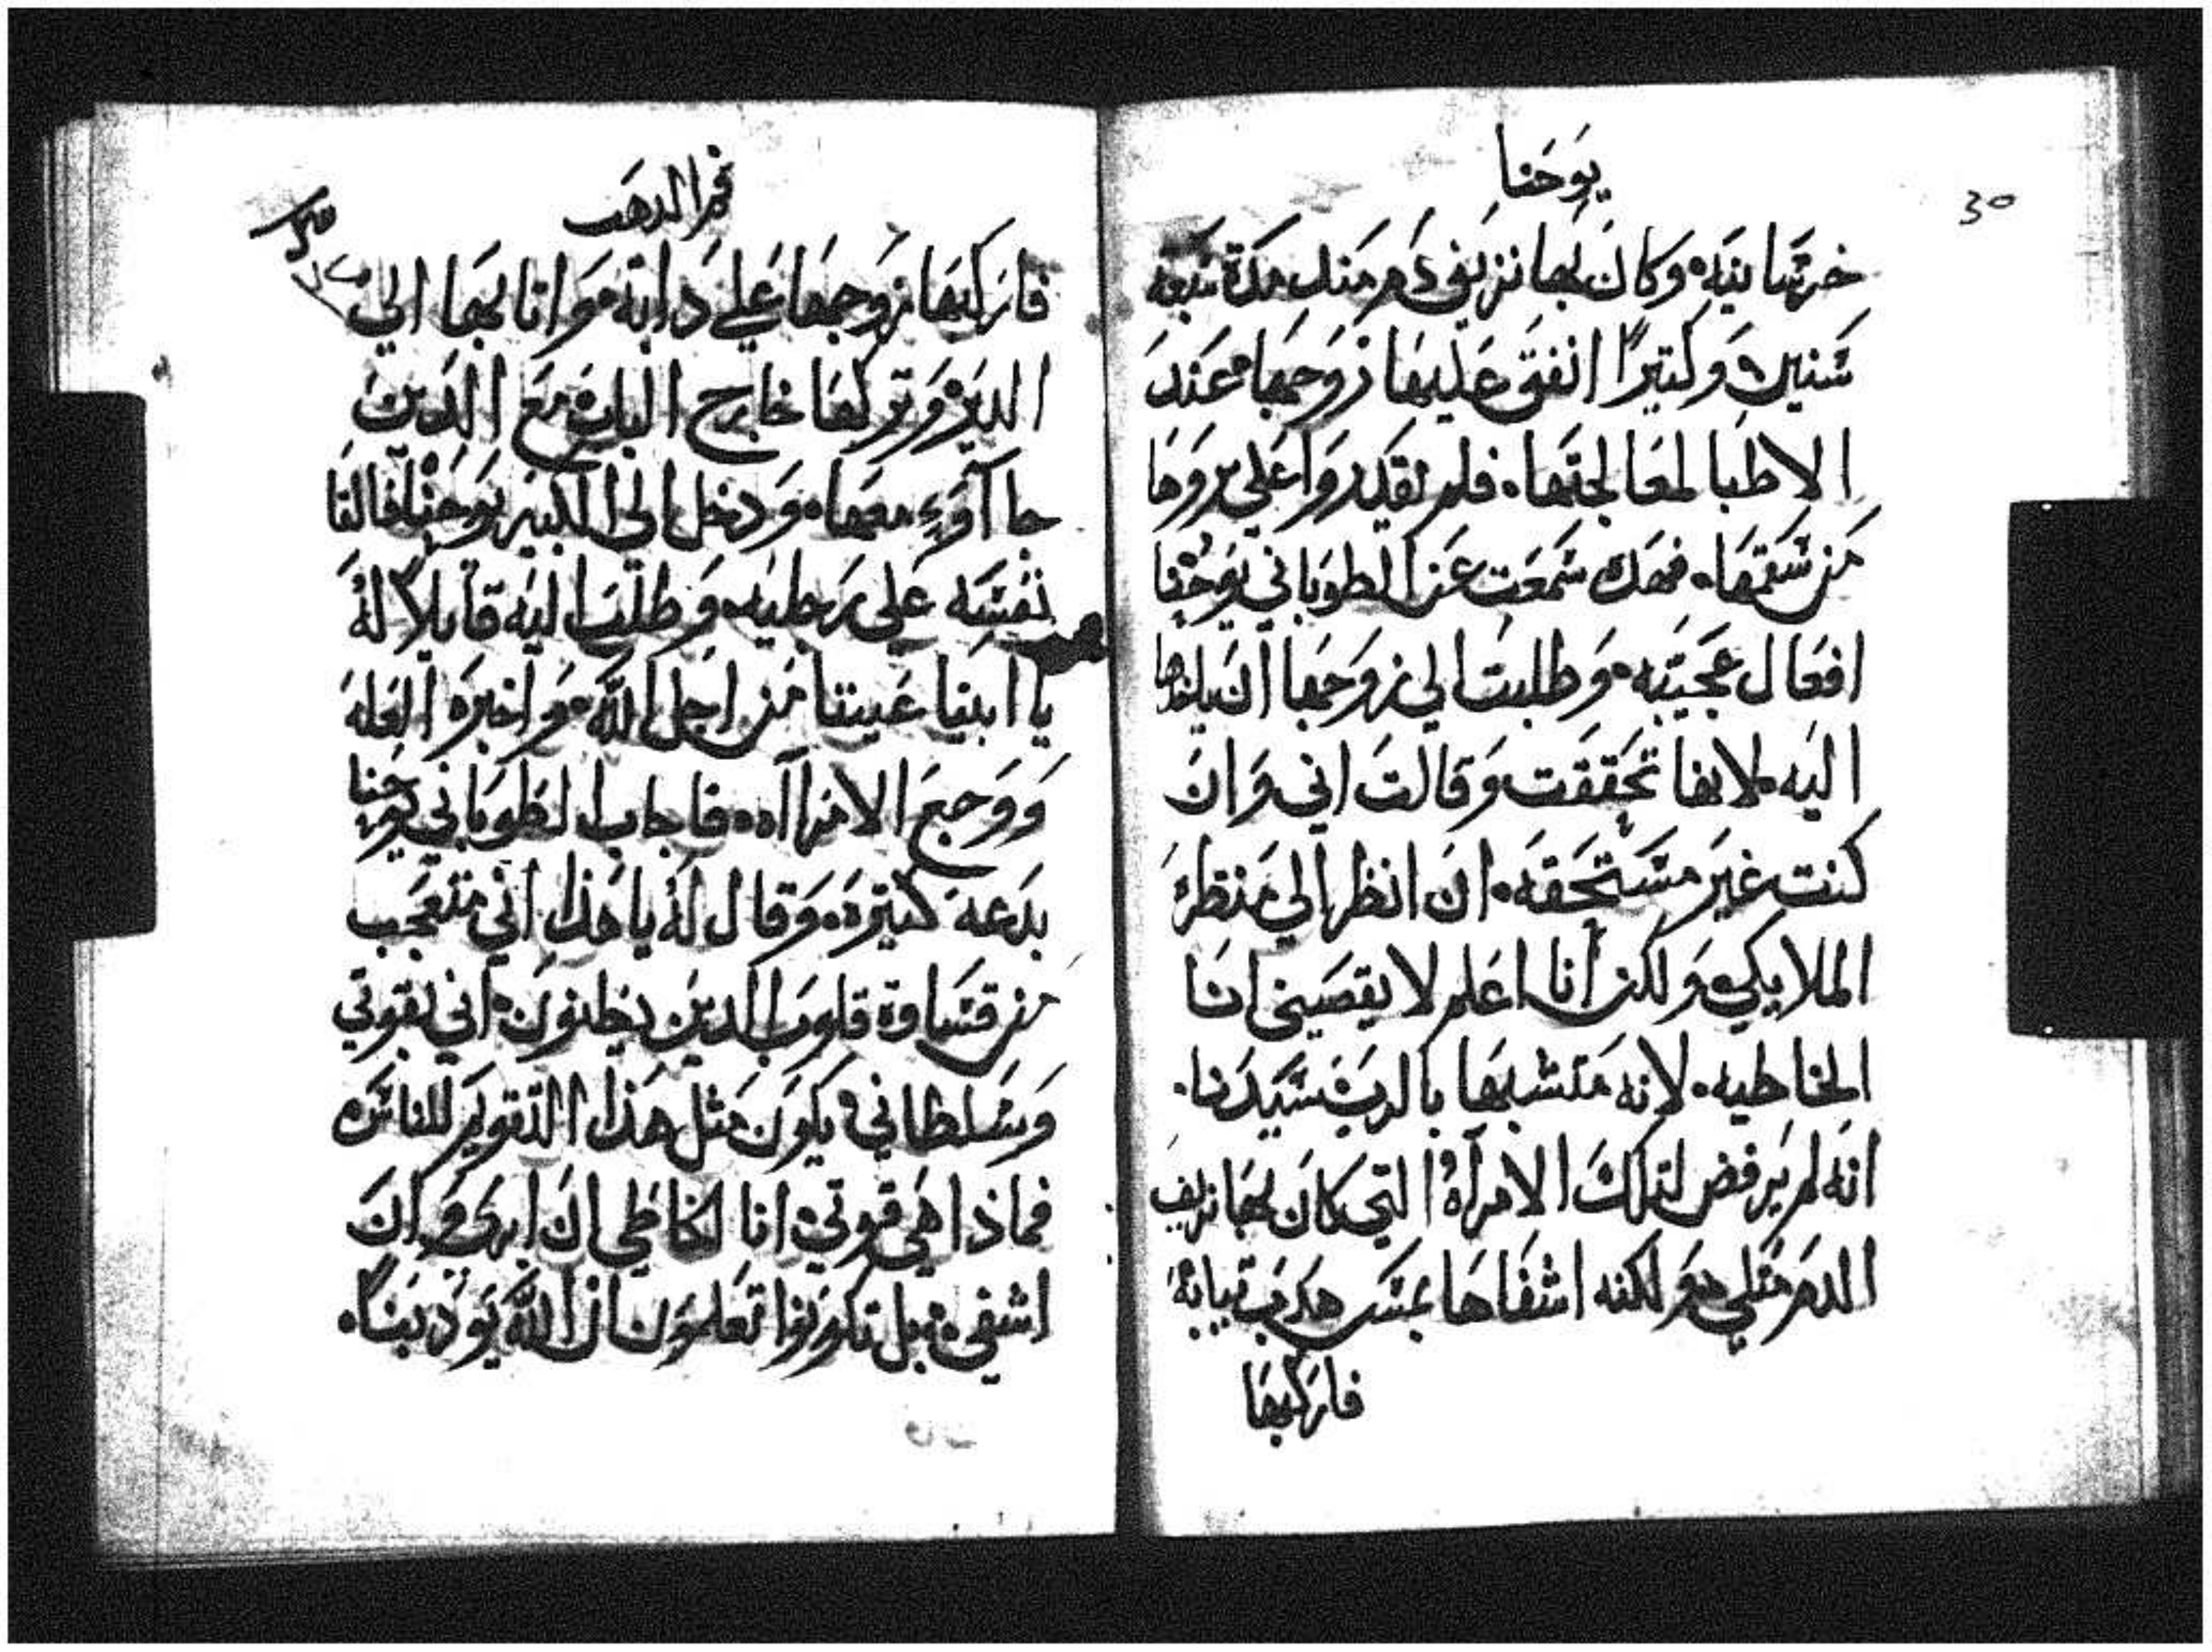 يوحنا
30
خرسانيه وكان لها نزيف دم منذ مدة سبعة
سنين وكتيرًا انفق عليها زوجها عند
الاطبا لمعالجتها. فلم تقدروا على بروها
من سقمها. فهدك سمعت عن الطوباني يوحنا
افعال عجيبه وطلبت الي زوجها ان ياخدها
اليه لانها تحققت وقالت اني وان
كنت غير مستحقه. ان انظر الي منظر
الملايكي ولكن انا اعلم لا يقصيني انا
الخاطيه. لانه متشبها بالرب سيدنا.
انه لم يرفض لتلك الامرأه التي كان لها نزيف
الدم متلي ولكنه اشفاها بمس هدب تيابه
فاركبها
فم الدهب
فاركبها زوجها علي دابة وانا بها الي
الدير وتركها خارج الباب مع الدين
جاآوء معها. ودخل الي الكبير يوحنا فالقا
نفسه علي رجليه وطلب اليه قايلاً له
يا ابينا عيننا من اجل الله واخبره العله
ووجع الامراآه. فاجاب الطوباني يوحنا
بدعه كتيره. وقال له يا هذا اني متعجب
من قساوة قلوب الدين يظنون اني بقوتي
وسلطاني يكون مثل هذا التقويم للناس
فماذا هي قوتي انا الخاطي ان ابري وان
اشفي بل تكونوا تعلمون ان الله يودبنا.